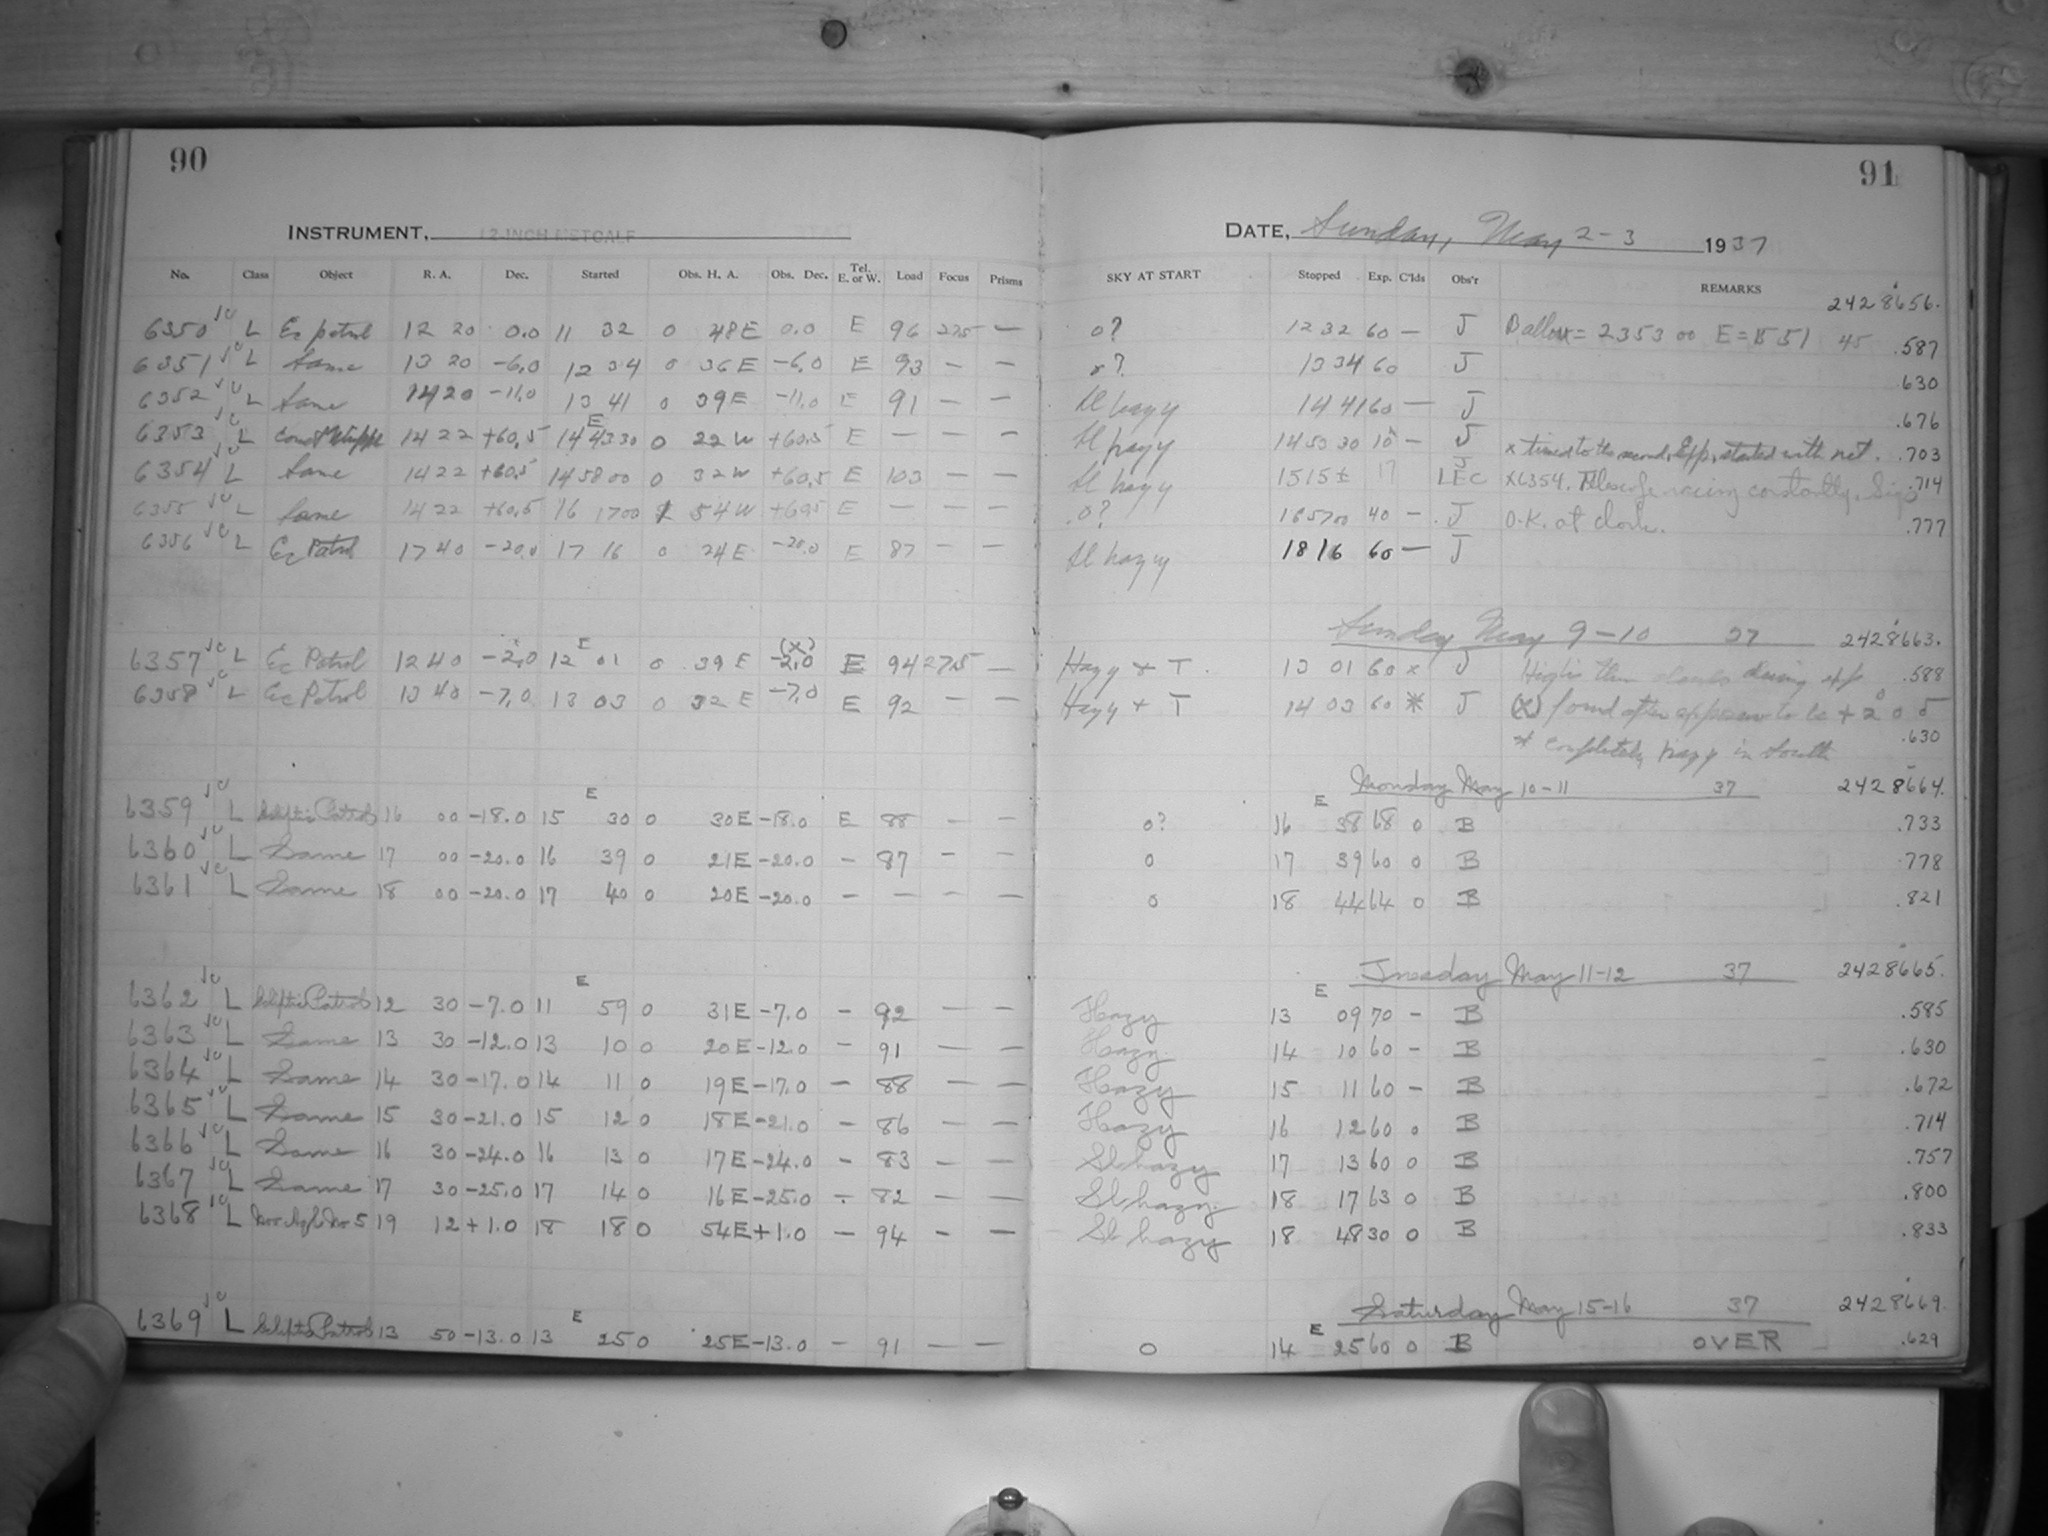 90
INSTRUMENT, 12-INCH METCALF
No. Class Object R. A. Dec. Started Obs. H. A. Obs. Dec. Tel. E. or W. Load Focus Prisms
6350 L Ec Patrol 12 20 0.0 11 32 0 48E 0.0 E 96 275 —
6351 L Same 13 20 -6.0 12 34 0 36E -6.0 E 93 — —
6352 L Same 14 20 -11.0 13 41 0 39E -11.0 E 91 — —
6353 L 14 22 +60.5 14 E 43 30 0 22W +60.5 E — — —
6354 L Same 14 22 +60.5 14 58 00 0 32W +60.5 E 103 — —
6355 L Same 14 22 +60.5 16 17 00 54W +60.5 E — — —
6356 L Ec Patrol 17 40 -20.0 17 16 0 24E -20.0 E 87 — —
6357 L Ec Patrol 12 40 -2.0 12 E 01 0 39E (x) -2.0 E 94 275 —
6358 L Ec Patrol 13 40 -7.0 13 03 0 32E -7.0 E 92 — —
6359 L Ecliptic Patrol 16 00 -18.0 15 E 30 0 30E -18.0 E 88 — —
6360 L Same 17 00 -20.0 16 39 0 21E -20.0 - 87 — —
6361 L Same 18 00 -20.0 17 40 0 20E -20.0 - — — —
6362 L Ecliptic Patrol 12 30 -7.0 11 E 59 0 31E -7.0 - 92 — —
6363 L Same 13 30 -12.0 13 10 0 20E -12.0 - 91 — —
6364 L Same 14 30 -17.0 14 11 0 19E -17.0 - 88 — —
6365 L Same 15 30 -21.0 15 12 0 18E -21.0 - 86 — —
6366 L Same 16 30 -24.0 16 13 0 17E -24.0 - 83 — —
6367 L Same 17 30 -25.0 17 14 0 16E -25.0 - 82 — —
6368 L No 5 19 12 +1.0 18 18 0 54E +1.0 - 94 — —
6369 L Ecliptic Patrol 13 50 -13.0 13 E 25 0 25E -13.0 - 91 — —
91
DATE, Sunday, May 2-3 1937
SKY AT START Stopped Exp. C'lds Obs'r REMARKS
2428656.
0? 12 32 60 — J = 2353 00 E = 1551 45 .587
0? 13 34 60 J .630
Sl hazy 14 41 60 — J .676
Sl hazy 14 53 30 10x — J x timed to the second. Exp. started with net. .703
Sl hazy 15 15± 17 J LEC x6354. Telescope racing constantly. .714
0? 16 57 00 40 — J O.K. at clock. .777
Sl hazy 18 16 60 — J
Sunday May 9-10 37 2428663.
Hazy + T. 13 01 60 x J High thin clouds during exp .588
Hazy + T 14 03 60 * J (x) found after exposure to be +2° 0 5
* completely hazy in South .630
Monday May 10-11 37 2428664.
0? 16 E 38 68 0 B .733
0 17 39 60 0 B .778
0 18 44 64 0 B .821
Tuesday May 11-12 37 2428665.
Hazy 13 E 09 70 - B .585
Hazy 14 10 60 - B .630
Hazy 15 11 60 - B .672
Hazy 16 12 60 0 B .714
Sl hazy 17 13 60 0 B .757
Sl hazy 18 17 63 0 B .800
Sl hazy 18 48 30 0 B .833
Saturday May 15-16 37 2428669.
0 14 E 25 60 0 B OVER .629